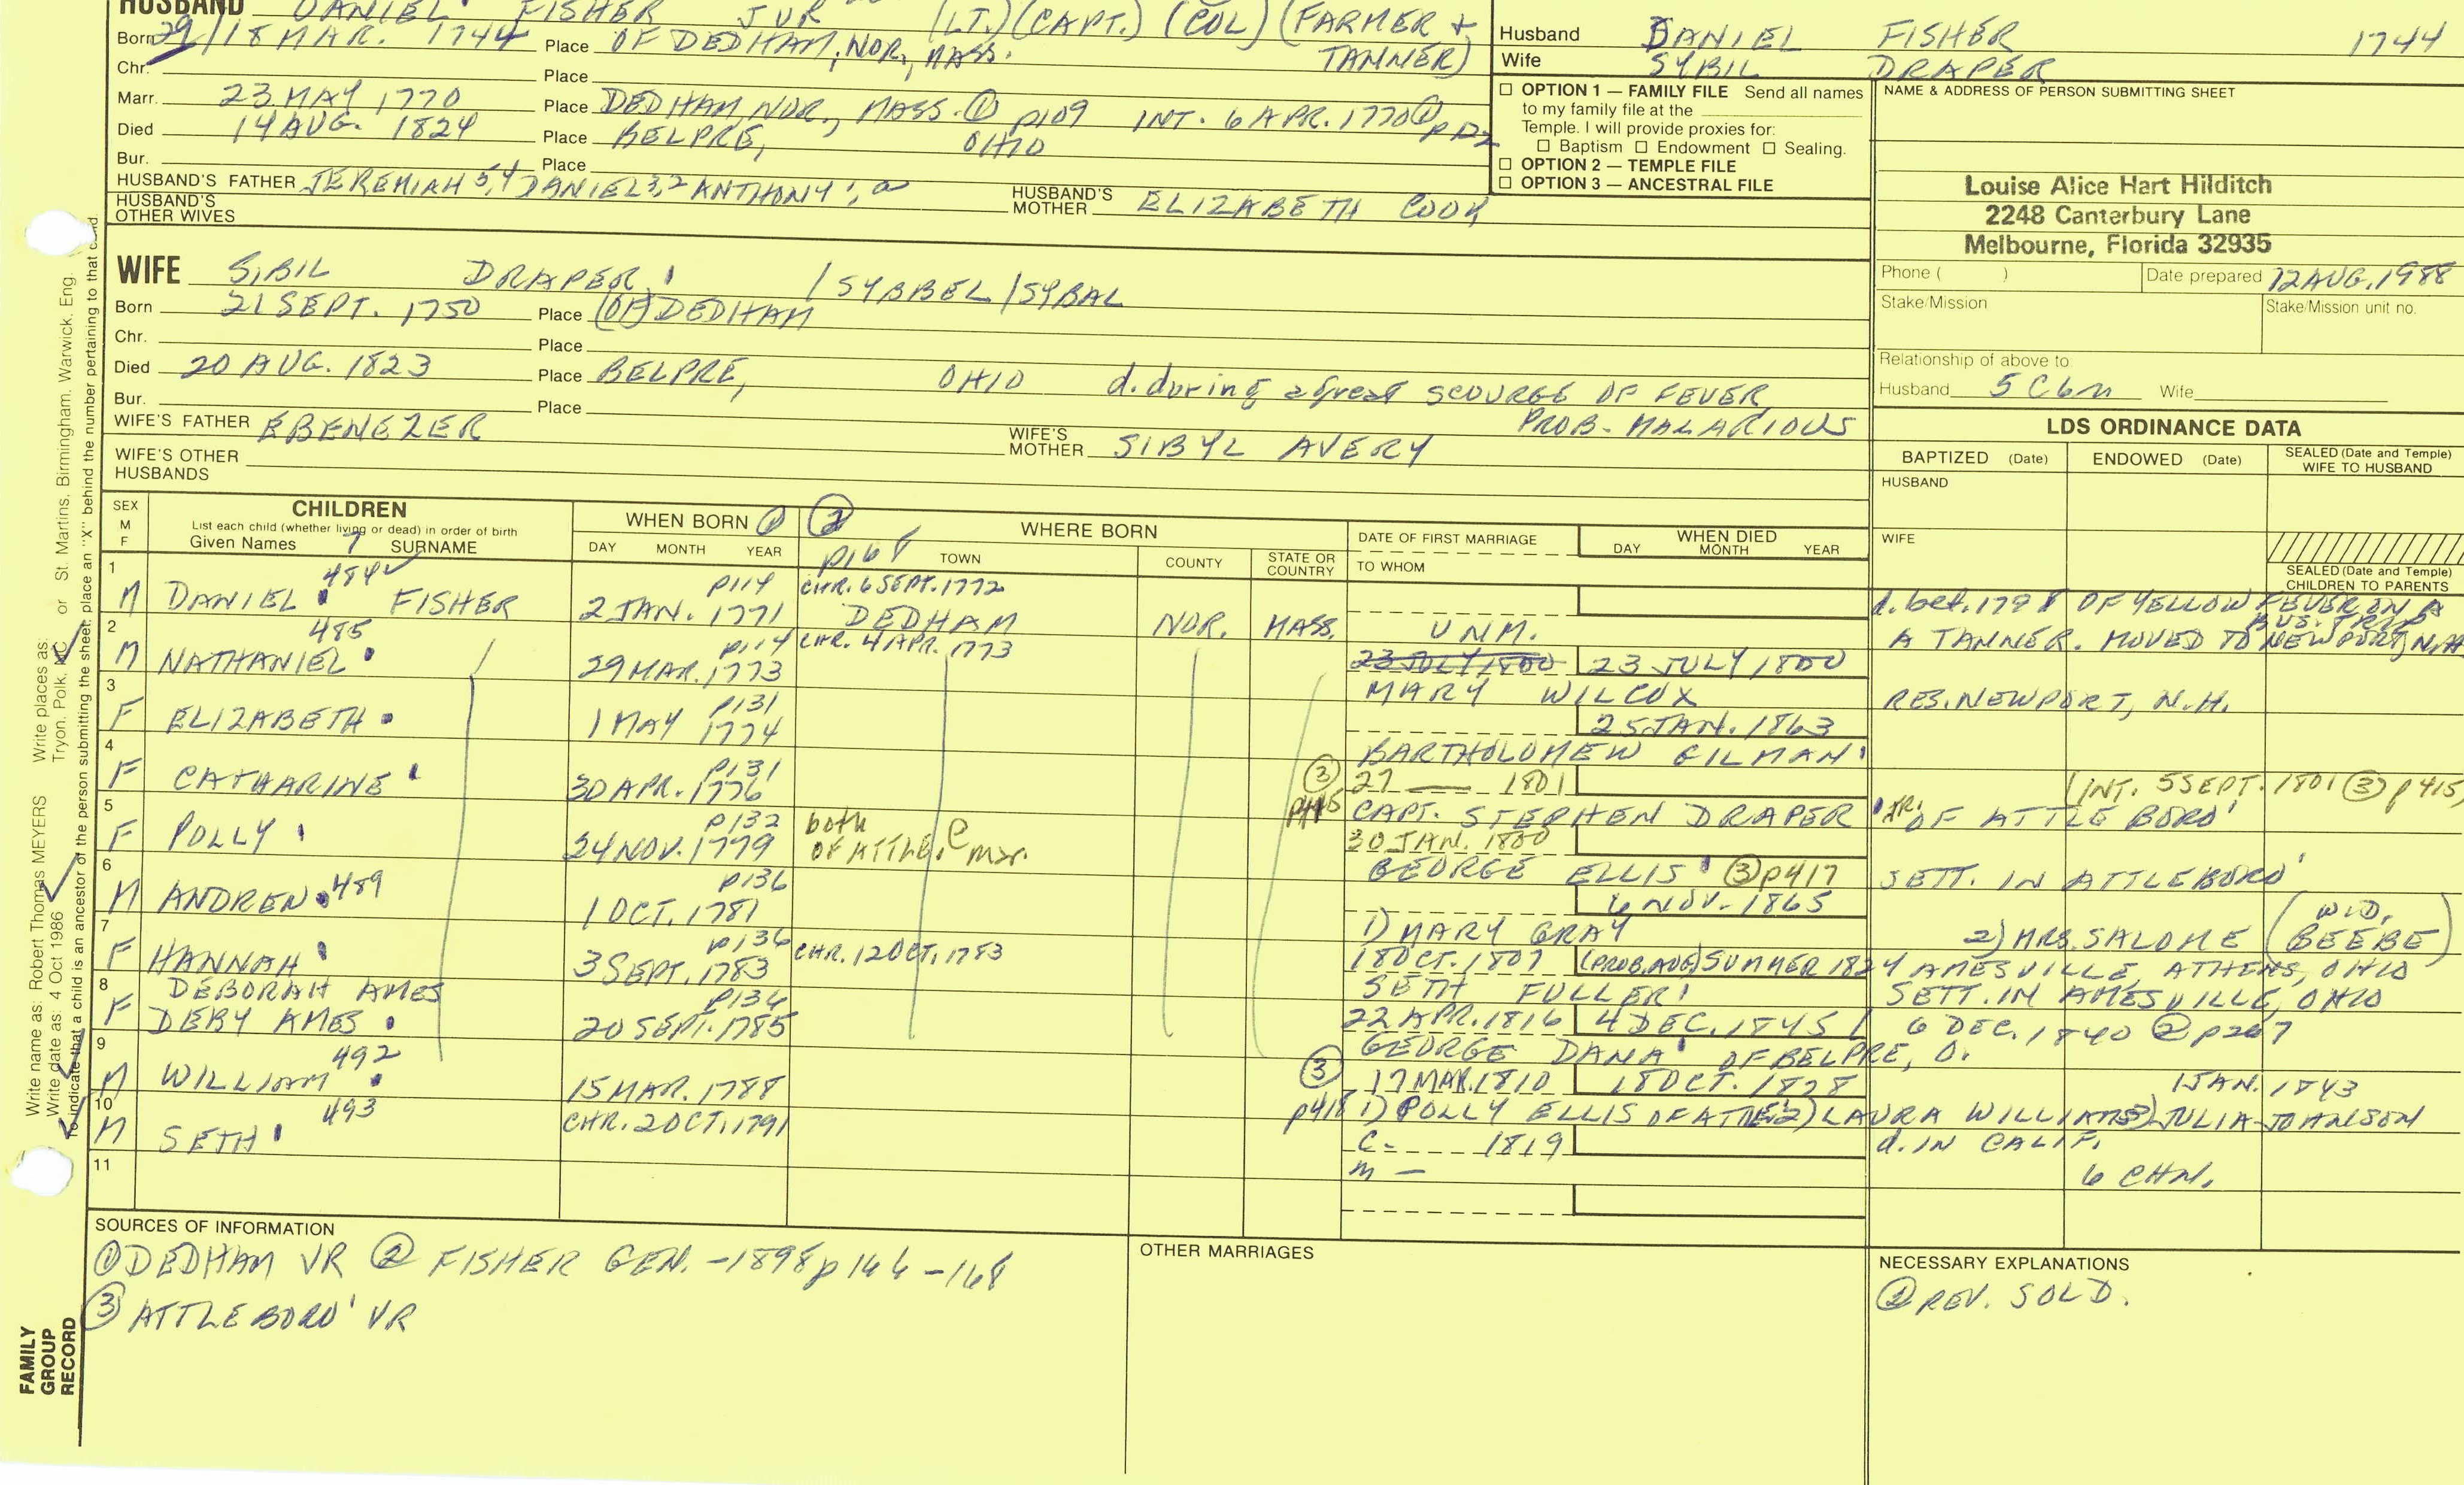 HUSBAND DANIEL FISHER JUR (LT.) (CAPT.) (COL) (FARMER + TANNER)
Born 29/18 MAR. 1744 Place OF DEDHAM, NOR., MASS.
Chr. Place
Marr. 23 MAY 1770 Place DEDHAM, NOR., MASS. ① p109 INT. 6 APR. 1770 ①
Died 14 AUG. 1824 Place BELPRE, OHIO
Bur. Place
HUSBAND'S FATHER JEREMIAH 5,4 DANIEL 3,2 ANTHONY 1, HUSBAND'S MOTHER ELIZABETH COOK
HUSBAND'S OTHER WIVES
Husband DANIEL FISHER 1744
Wife SYBIL DRAPER
☐ OPTION 1 — FAMILY FILE Send all names
to my family file at the
Temple. I will provide proxies for:
☐ Baptism ☐ Endowment ☐ Sealing.
☐ OPTION 2 — TEMPLE FILE
☐ OPTION 3 — ANCESTRAL FILE
NAME & ADDRESS OF PERSON SUBMITTING SHEET
Louise Alice Hart Hilditch
2248 Canterbury Lane
Melbourne, Florida 32935
Phone ( ) Date prepared 12 AUG. 1988
Stake/Mission Stake/Mission unit no.
Relationship of above to
Husband 5C6n Wife
WIFE SIBIL DRAPER / SYBBEL / SYBAL
Born 21 SEPT. 1750 Place (OF) DEDHAM
Chr. Place
Died 20 AUG. 1823 Place BELPRE, OHIO d. during a great SCOURGE OF FEVER
Bur. Place PROB. MALARIOUS
WIFE'S FATHER EBENEZER WIFE'S MOTHER SIBYL AVERY
WIFE'S OTHER HUSBANDS
LDS ORDINANCE DATA
BAPTIZED (Date) ENDOWED (Date) SEALED (Date and Temple) WIFE TO HUSBAND
HUSBAND
WIFE
SEALED (Date and Temple) CHILDREN TO PARENTS
SEX M F CHILDREN WHEN BORN ① ② WHERE BORN DATE OF FIRST MARRIAGE WHEN DIED
List each child (whether living or dead) in order of birth
Given Names 7 SURNAME DAY MONTH YEAR p168 TOWN COUNTY STATE OR COUNTRY TO WHOM DAY MONTH YEAR
1 484 p114 CHR. 6 SEPT. 1772
M DANIEL FISHER 2 JAN. 1771 DEDHAM NOR. MASS. UNM. d. bet. 1798 OF YELLOW FEVER ON A BUS. TRIP
2 485 p114 CHR. 4 APR. 1773 A TANNER. MOVED TO NEWPORT, N.H.
M NATHANIEL 29 MAR. 1773 23 JULY 1800 23 JULY 1800
MARY WILCOX RES. NEWPORT, N.H.
3 p131
F ELIZABETH 1 MAY 1774 25 JAN. 1863
BARTHOLOMEW GILMAN
4 p131
F CATHARINE 30 APR. 1776 ③ 27 — 1801 INT. 5 SEPT. 1801 ③ p415
CAPT. STEPHEN DRAPER JR. OF ATTLEBORO'
5 p132 both OF ATTLE. @ mar.
F POLLY 24 NOV. 1779 30 JAN. 1800
GEORGE ELLIS ③ p417 SETT. IN ATTLEBORO'
6 489 p136
M ANDREN 1 OCT. 1781 6 NOV. 1865
1) MARY GRAY 2) MRS. SALOME (WID. BEEBE)
7 p136 CHR. 12 OCT. 1783
F HANNAH 3 SEPT. 1783 18 OCT. 1807 (PROB. AUG) SUMMER 1824 AMESVILLE, ATHENS, OHIO
SETH FULLER SETT. IN AMESVILLE, OHIO
8 DEBORAH AMES p136
F DEBY AMES 20 SEPT. 1785 22 APR. 1816 4 DEC. 1845 / 6 DEC. 1840 ② p267
GEORGE DANA OF BELPRE, O.
9 492
M WILLIAM 15 MAR. 1788 ③ 17 MAR. 1810 18 OCT. 1828 1 JAN. 1843
p418 1) POLLY ELLIS OF ATTLE. 2) LAURA WILLIAMS 3) JULIA JOHNSON
10 493 CHR. 2 OCT. 1791
M SETH C. 1819 d. IN CALIF.
m — 6 CHN.
11
SOURCES OF INFORMATION
① DEDHAM VR ② FISHER GEN. - 1898 p166-168
③ ATTLEBORO' VR
OTHER MARRIAGES
NECESSARY EXPLANATIONS
ⓐ REV. SOLD.
Write name as: Robert Thomas MEYERS Write places as: Tryon, Polk, NC or St. Martins, Birmingham, Warwick, Eng.
Write date as: 4 Oct 1986
To indicate that a child is an ancestor of the person submitting the sheet, place an "X" behind the number pertaining to that child
FAMILY GROUP RECORD